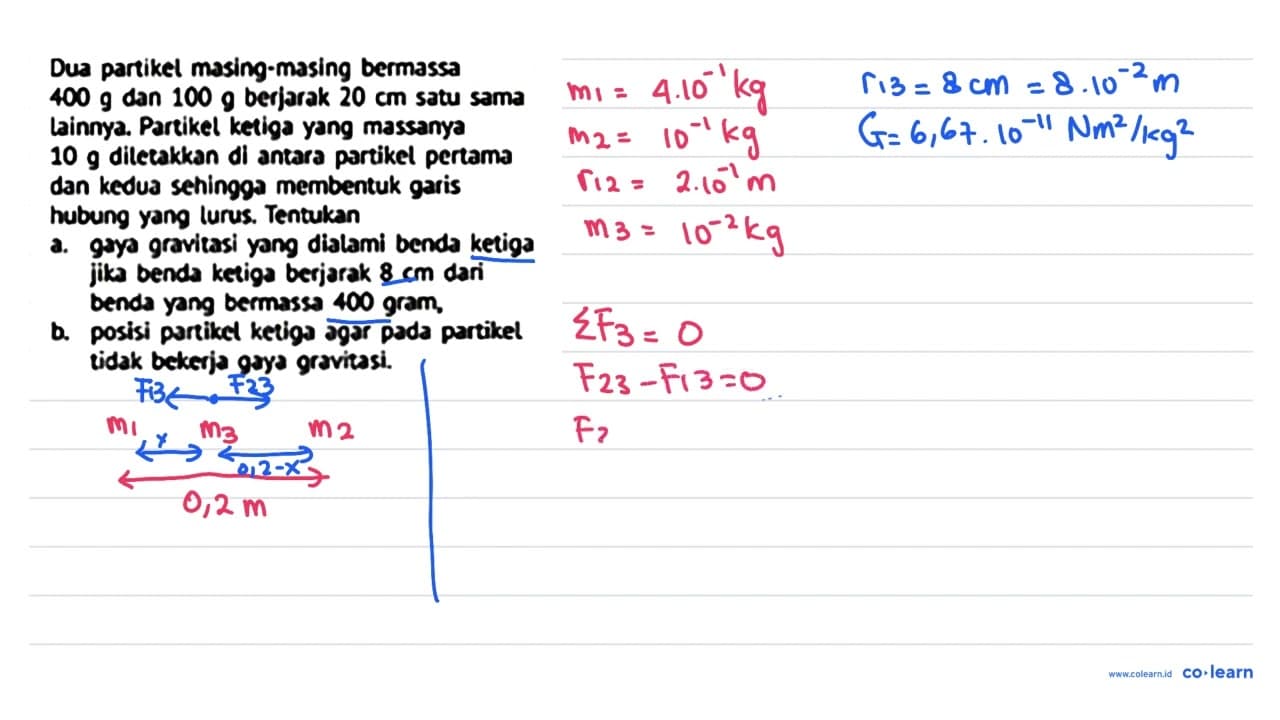 Dua partikel masing-masing bermassa
400 g dan 100 g berjarak 20 cm satu sama
lainnya. Partikel ketiga yang massanya
10 g diletakkan di antara partikel pertama
dan kedua sehingga membentuk garis
hubung yang lurus. Tentukan
a. gaya gravitasi yang dialami benda ketiga
jika benda ketiga berjarak 8 cm dari
benda yang bermassa 400 gram,
b. posisi partikel ketiga agar pada partikel
tidak bekerja gaya gravitasi.
F13 F23
m1 m3 m2
x 0,2-x
0,2 m
m1 = 4.10⁻¹ kg
m2 = 10⁻¹ kg
r12 = 2.10⁻¹ m
m3 = 10⁻² kg
ΣF3 = 0
F23 - F13 = 0
F2
r13 = 8 cm = 8.10⁻² m
G = 6,67.10⁻¹¹ Nm²/kg²
www.colearn.id co·learn